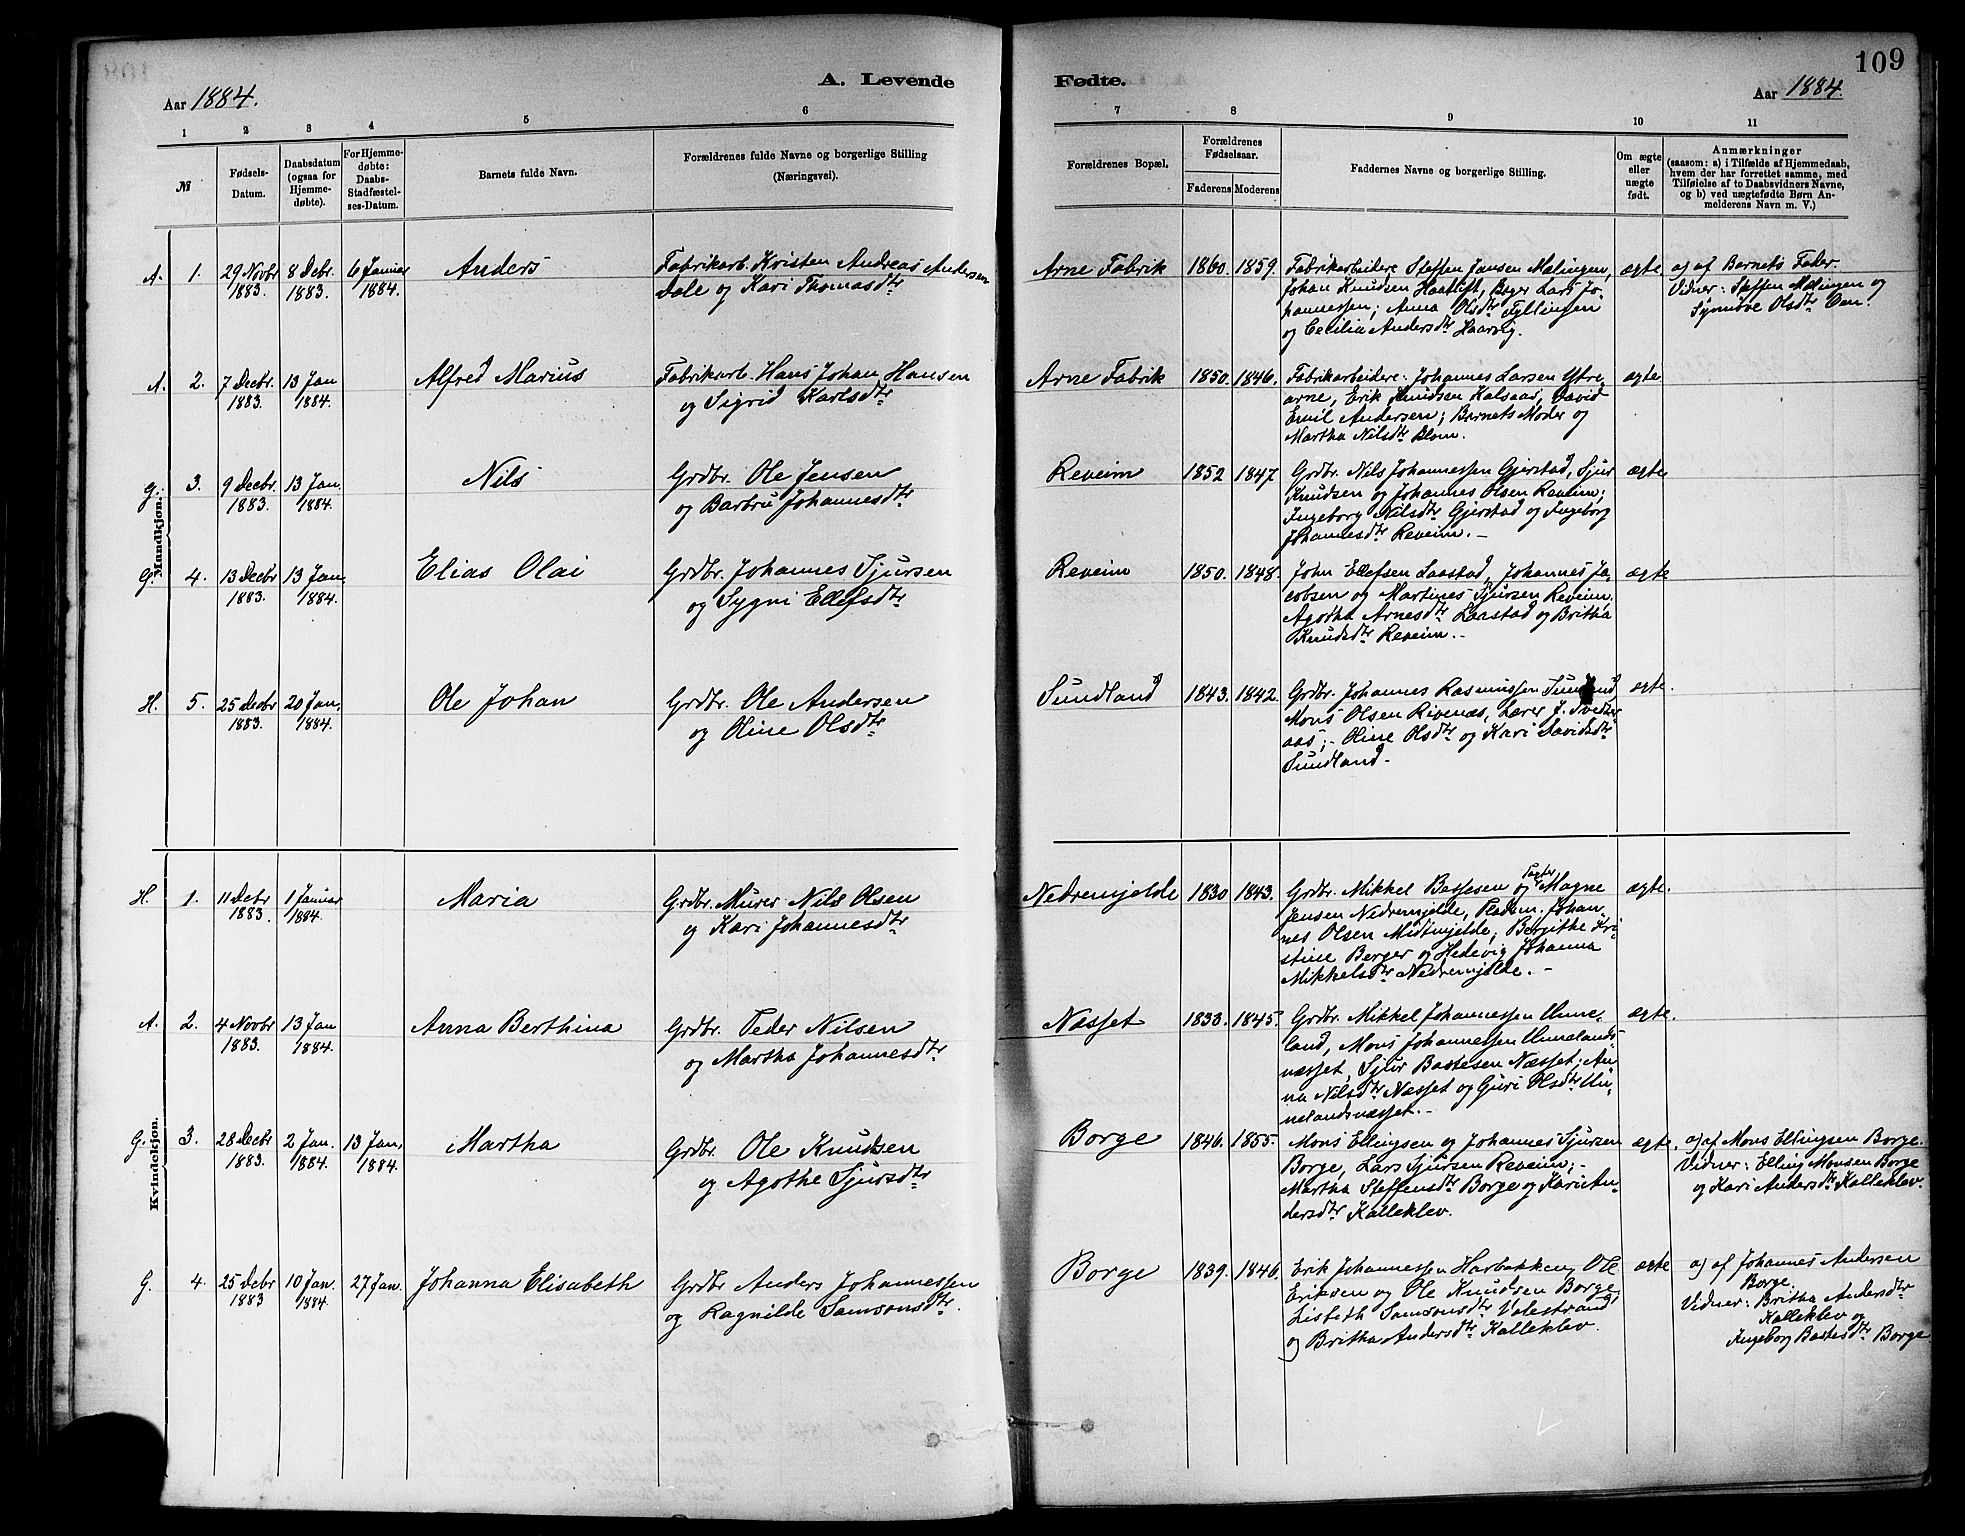 109
A. Levende Fødte.
Aar 1884.
Aar 1884.
1 2 3 4 5 6 7 8 9 10 11
№
Fødsels-
Datum.
Daabsdatum
(ogsaa for
Hjemme-
døbte).
For Hjemme-
døbte:
Daabs-
Stadfæstel-
ses-Datum.
Barnets fulde Navn.
Forældrenes fulde Navne og borgerlige Stilling
(Næringsvei).
Forældrenes Bopæl.
Forældrenes
Fødselsaar.
Faderens Moderens
Faddernes Navne og borgerlige Stilling.
Om ægte
eller
uægte
født.
Anmærkninger
(saasom: a) i Tilfælde af Hjemmedaab,
hvem der har forrettet samme, med
Tilføielse af to Daabsvidners Navne,
og b) ved uægtefødte Børn An-
melderens Navn m. V.)
Mandkjøn.
A. 1.
29 Novbr
1883.
8 Debr.
1883.
6 Januar
1884.
Anders
Fabrikarb. Kristen Andreas Andersen
Dale og Kari Thomasdtr
Arne Fabrik
1860. 1859.
Fabrikarbeidere Steffen Jansen Malingen,
Johan Knudsen Haatuft, Bager Lars Jo-
hannessen; Anna Olsdtr Fyllingen
og Cecilia Andersdtr Haarvig.
ægte
a) af Barnets Fader.
Vidner: Steffen Malingen og
Synnöve Olsdtr
A. 2.
7 Decbr.
1883.
13 Jan
1884.
Alfred Marius
Fabrikarb. Hans Johan Hansen
og Sigrid Karlsdtr
Arne Fabrik
1850. 1846.
Fabrikarbeidere: Johannes Larsen Ytre-
arne, Erik Knudsen Kalsaas, David
Emil Andersen; Barnets Moder og
Martha Nilsdtr Blom.
ægte
G. 3.
9 Decbr.
1883.
13 Jan.
1884.
Nils
Grdbr. Ole Jensen
og Barbru Johannesdtr
Reveim
1852 1847.
Grdbr. Nils Johannessen Gjerstad, Sjur
Knudsen og Johannes Olsen Reveim;
Ingeborg Nilsdtr Gjerstad og Ingeborg
Johannesdtr Reveim. –
ægte
G. 4.
13 Decbr
1883.
13 Jan.
1884.
Elias Olai
Grdbr. Johannes Sjursen
og Sygni Ellefsdtr
Reveim
1850. 1848.
John Ellefsen Laastad, Johannes Ja-
cobsen og Martines Sjursen Reveim,
Agotha Arnesdtr Laastad og Britha
Knudsdtr Reveim. –
ægte
H. 5.
25 Decbr
1883.
20 Jan.
1884.
Ole Johan
Grdbr. Ole Andersen
og Oline Olsdtr
Sundland
1843. 1842.
Grdbr. Johannes Rasmussen Sundland
Mons Olsen Rivenæs, Lærer J. Tvedter-
aas; – Oline Olsdtr og Kari Davidsdtr
Sundland –
ægte.
Kvindekjøn.
H. 1.
11 Debr
1883.
1 Januar
1884.
Maria
Grdbr. Murer Nils Olsen
og Kari Johannesdtr
Nedremjelde
1830 1843.
Grdbr. Mikkel Bassesen og Magne
Jensen Nedremjelde, Pladsm. Johan-
nes Olsen Midtmjelde; Bergithe Kri-
stine Berger og Hedevig Johanna
Mikkelsdtr Nedremjelde. –
ægte.
A. 2.
4 Novbr
1883.
13 Jan
1884.
Anna Berthina
Grdbr. Peder Nilsen
og Martha Johannesdtr
Næsset
1838. 1845.
Grdbr. Mikkel Johannessen Unne-
land, Mons Johannessen Unnelands-
næsset, Sjur Bastesen Næsset; An-
na Nilsdtr Næsset og Guri Olsdtr Un-
nelandsnæsset. –
ægte.
G. 3.
28 Decbr
1883.
2 Jan.
1884.
13 Jan.
1884.
Martha
Grdbr. Ole Knudsen
og Agothe Sjursdtr
Borge
1846. 1855.
Mons Ellingsen og Johannes Sjursen
Borge, Lars Sjursen Reveim; –
Martha Steffensdtr Borge og Kari An-
dersdtr Kalleklev.
ægte.
a) af Mons Ellingsen Borge.
Vidner: Elling Monsen Borge
og Kari Andersdtr Kalleklev.
G. 4.
25 Debr
1883
10 Jan.
1884.
27 Jan.
Johanna Elisabeth
Grdbr Anders Johannessen
og Ragnilde Samsonsdtr.
Borge
1839. 1846.
Erik Johannessen Harbakken, Ole
Eriksen og Ole Knudsen Borge,
Lisbeth Samsonsdtr Valestrand
og Britha Andersdtr Kalleklev.
ægte
a) af Johannes Andersen
Borge.
Vidner: Britha Andersdtr
Kalleklev og
Ingeborg Bastesdtr Borge